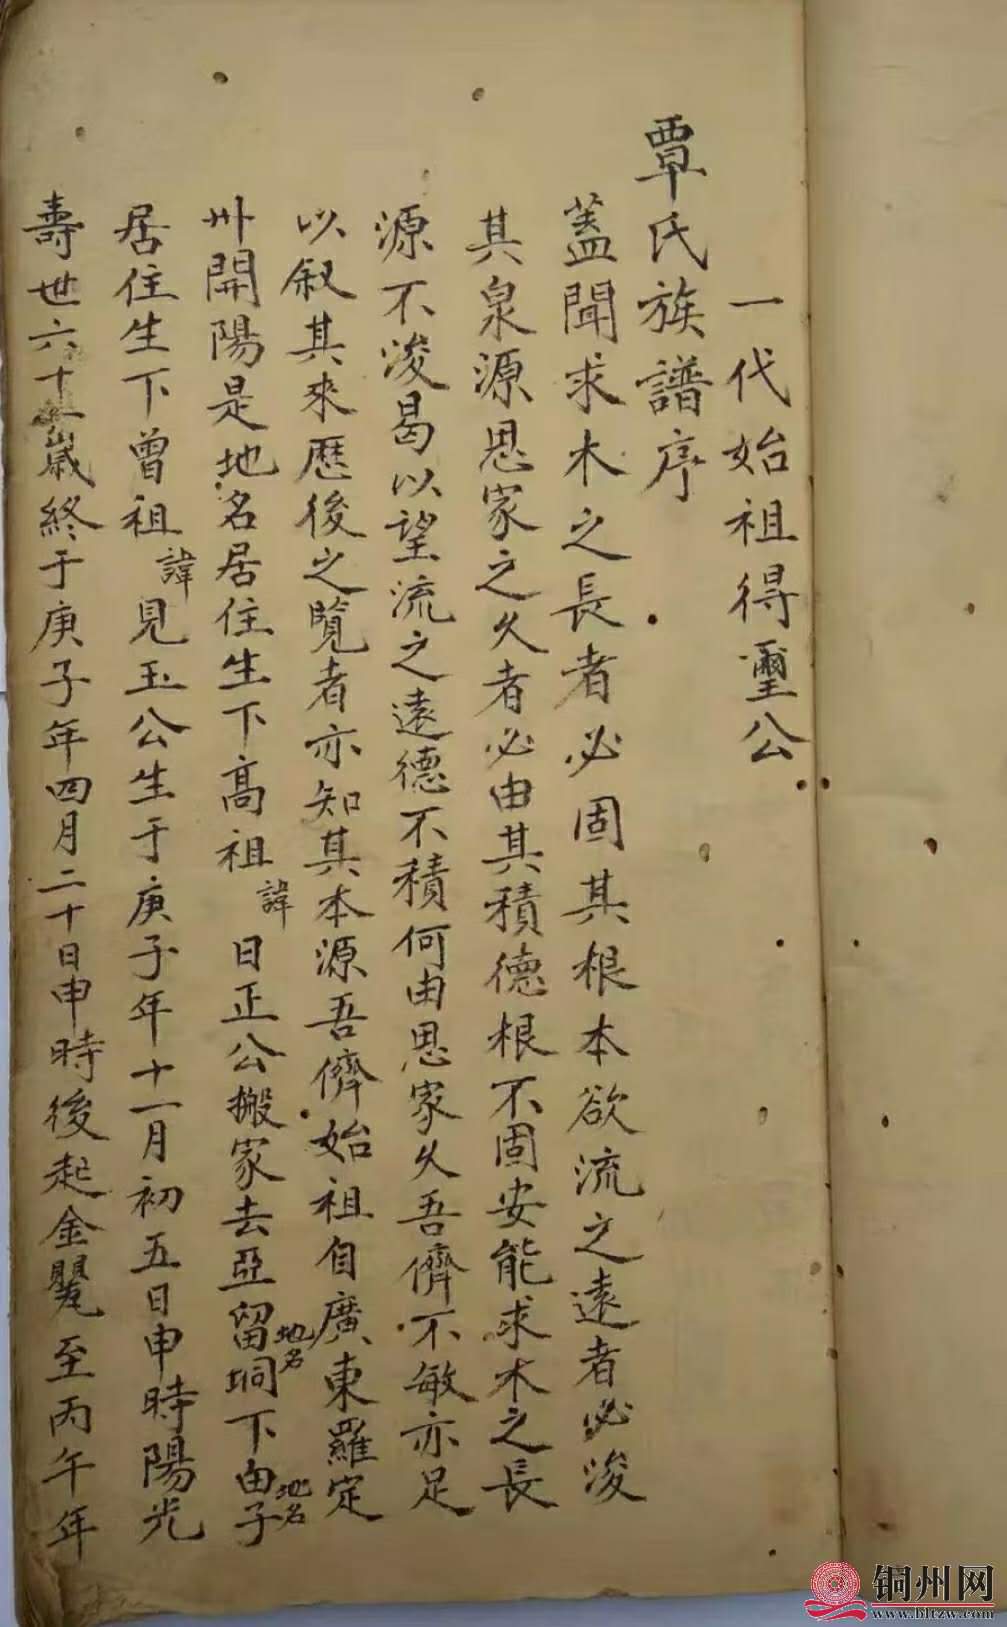 一代始祖得璽公
覃氏族譜序
蓋聞求木之長者必固其根本欲流之遠者必浚
其泉源思家之久者必由其積德根不固安能求木之長
源不浚曷以望流之遠德不積何由思家久吾儕不敏亦足
以叙其來歷後之覽者亦知其本源吾儕始祖自廣東羅定
州開陽是地名居住生下高祖諱日正公搬家去亞留垌地名下由子地名
居住生下曾祖諱見玉公生于庚子年十一月初五日申時陽光
壽世六十歲終于庚子年四月二十日申時後起金至丙午年
铜州网
www.bltzw.com